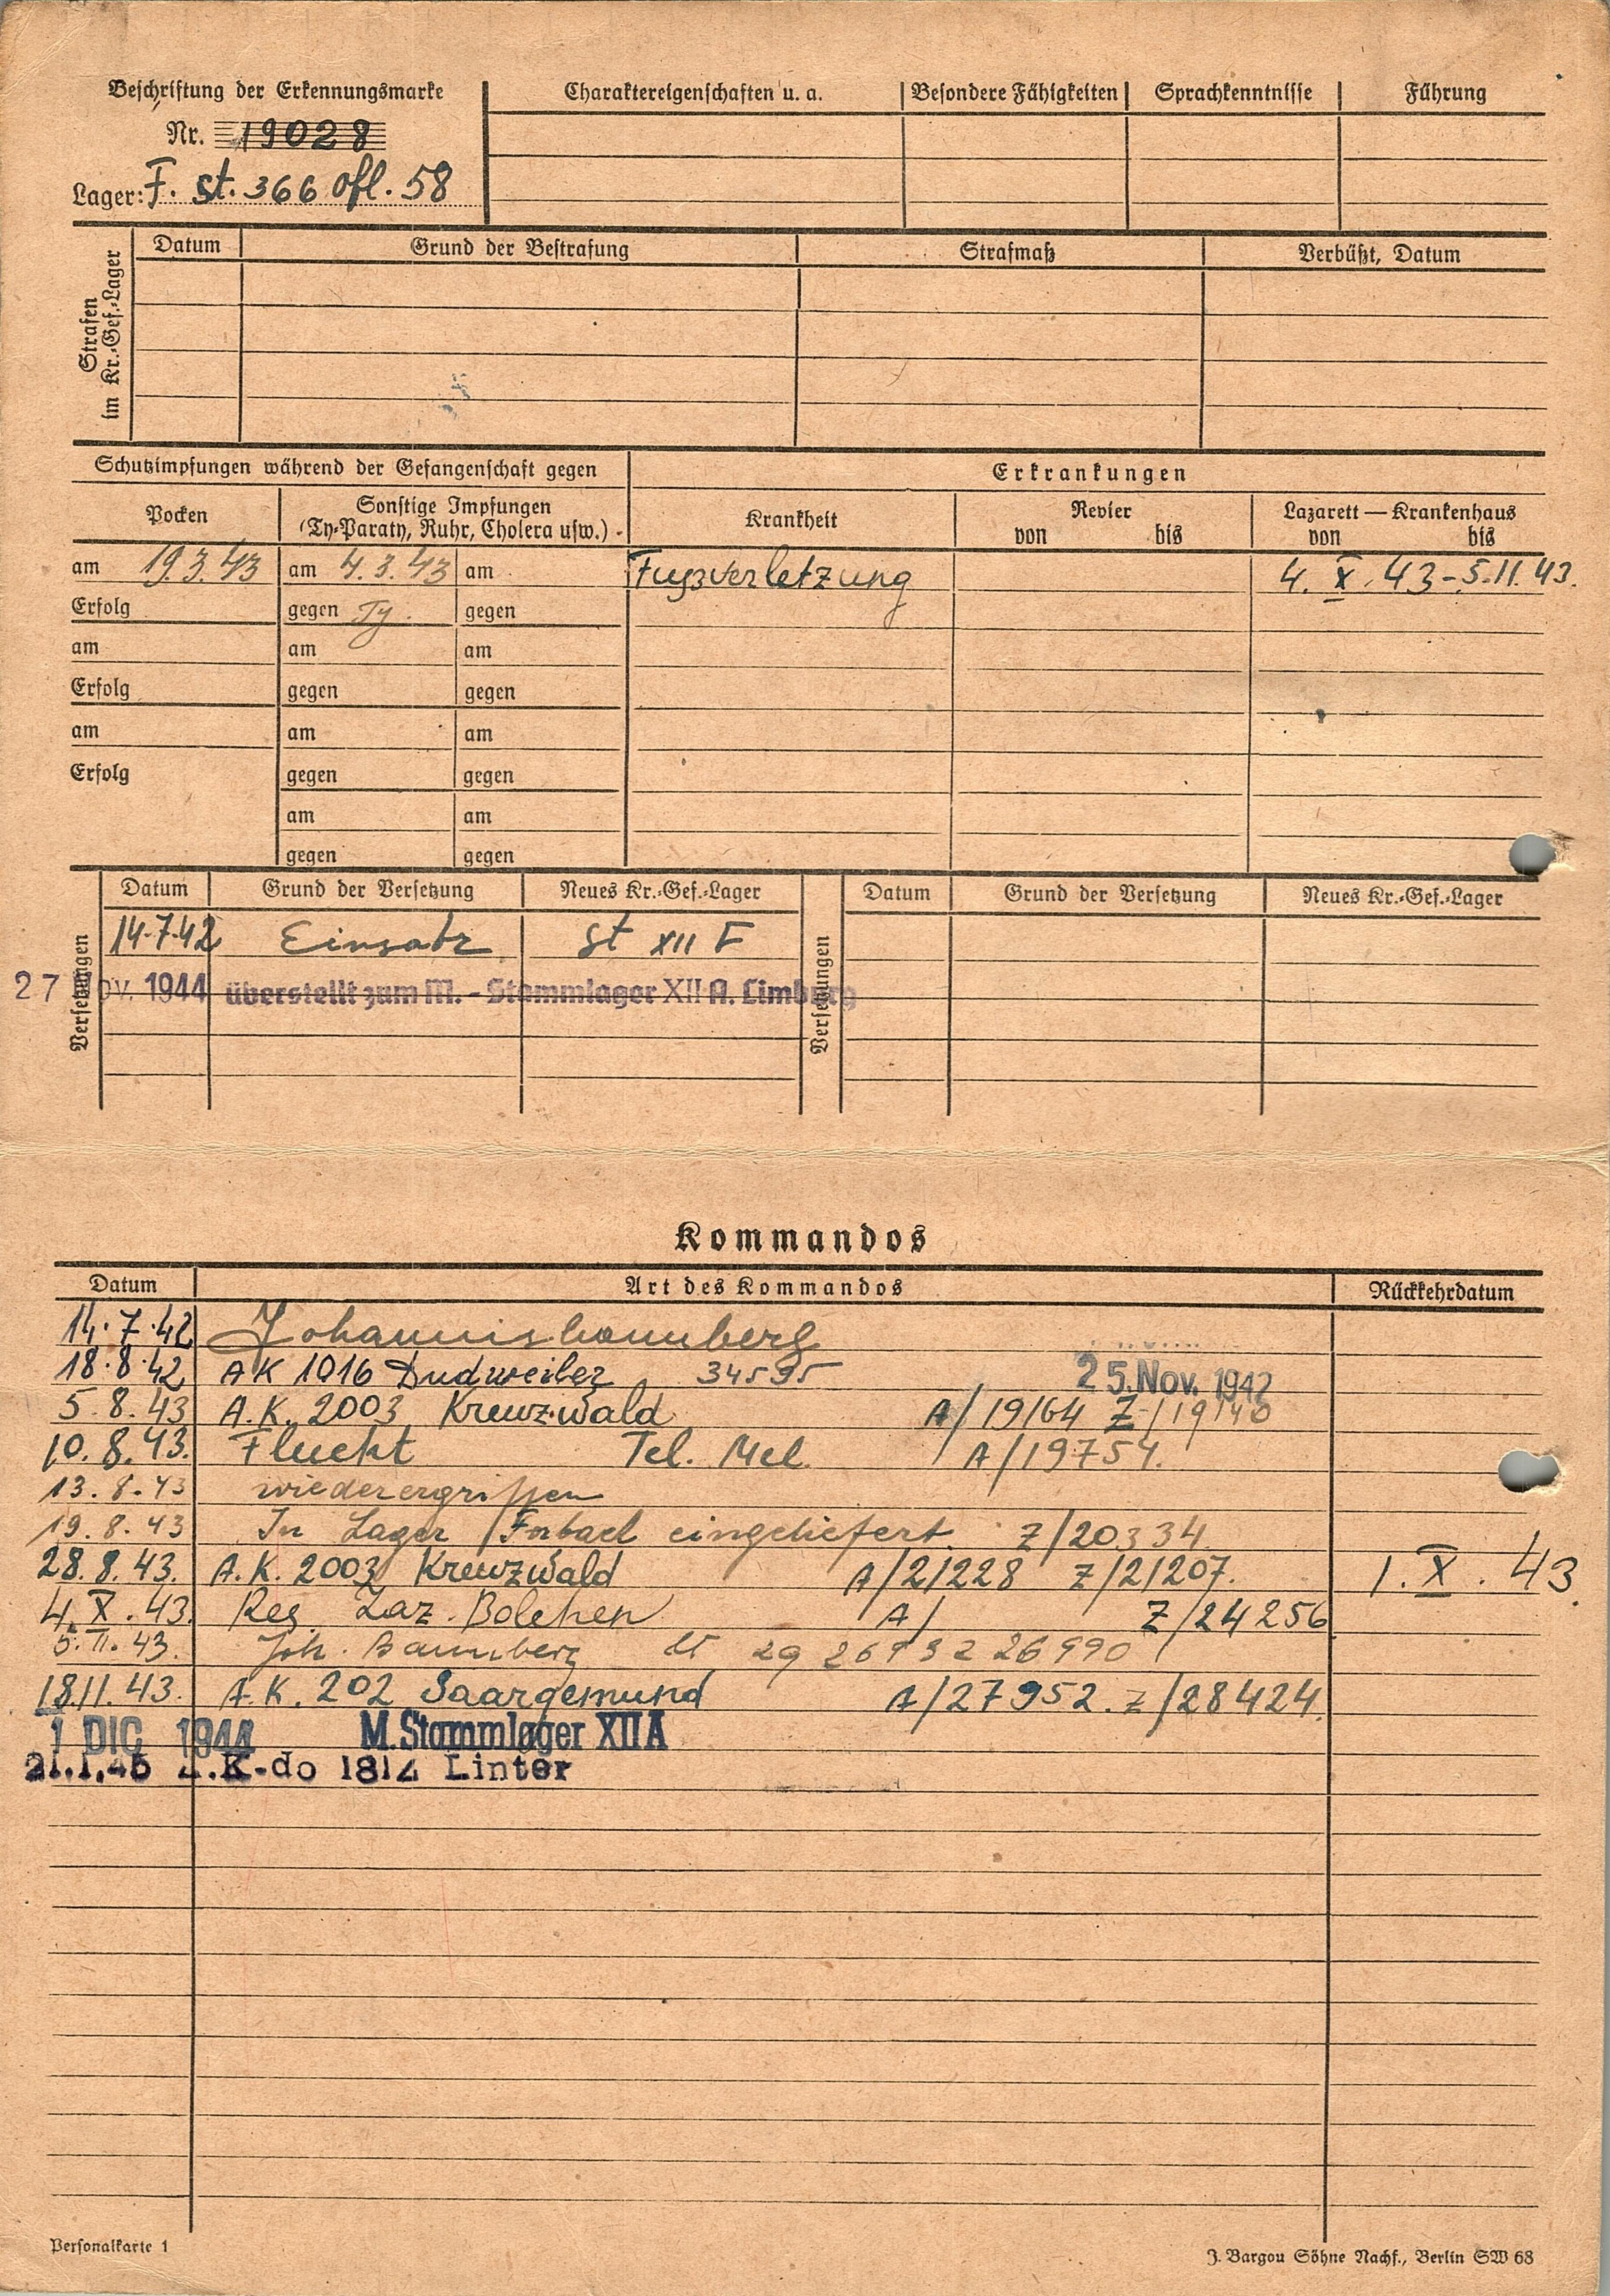 Beschriftung der Erkennungsmarke
Nr. 19028
Lager: F. st. 366 ofl. 58
Charaktereigenschaften u. a. Besondere Fähigkeiten Sprachkenntnisse Führung
Strafen im Kr.-Gef.-Lager
Datum Grund der Bestrafung Strafmaß Verbüßt, Datum
Schutzimpfungen während der Gefangenschaft gegen
Erkrankungen
Pocken
Sonstige Impfungen
(Ty-Paraty, Ruhr, Cholera usw.)
Krankheit
Revier
von bis
Lazarett — Krankenhaus
von bis
am 19.3.43 am 4.3.43 am Fußverletzung 4. X. 43 - 5.11.43.
Erfolg gegen Ty. gegen
am am am
Erfolg gegen gegen
am am am
Erfolg gegen gegen
am am
gegen gegen
Versetzungen
Datum Grund der Versetzung Neues Kr.-Gef.-Lager
14.7.42 Einsatz St XII F
27 Nov. 1944 überstellt zum M. - Stammlager XII A. Limburg
Versetzungen
Datum Grund der Versetzung Neues Kr.-Gef.-Lager
Kommandos
Datum Art des Kommandos Rückkehrdatum
14.7.42 Johannisbannberg
18.8.42 AK 1016 Dudweiler 34595 25. Nov. 1942
5.8.43 A.K. 2003 Kreuzwald A/19164 Z/19140
10.8.43. Flucht Tel. Mel. A/19754.
13.8.43 wiederergriffen
19.8.43 In Lager Forbach eingeliefert. Z/20334.
28.8.43. A.K. 2003 Kreuzwald A/21228 Z/21207. 1. X. 43.
4. X. 43. Res. Laz. Bolchen A/ Z/24256
5. II. 43. Joh. Bannberg 26990
18.11.43. A.K. 202 Saargemünd A/27952. Z/28424.
1 DIC 1944 M. Stammlager XII A
21.1.45 A.K-do 1814 Linter
Personalkarte 1
J. Bargou Söhne Nachf., Berlin SW 68